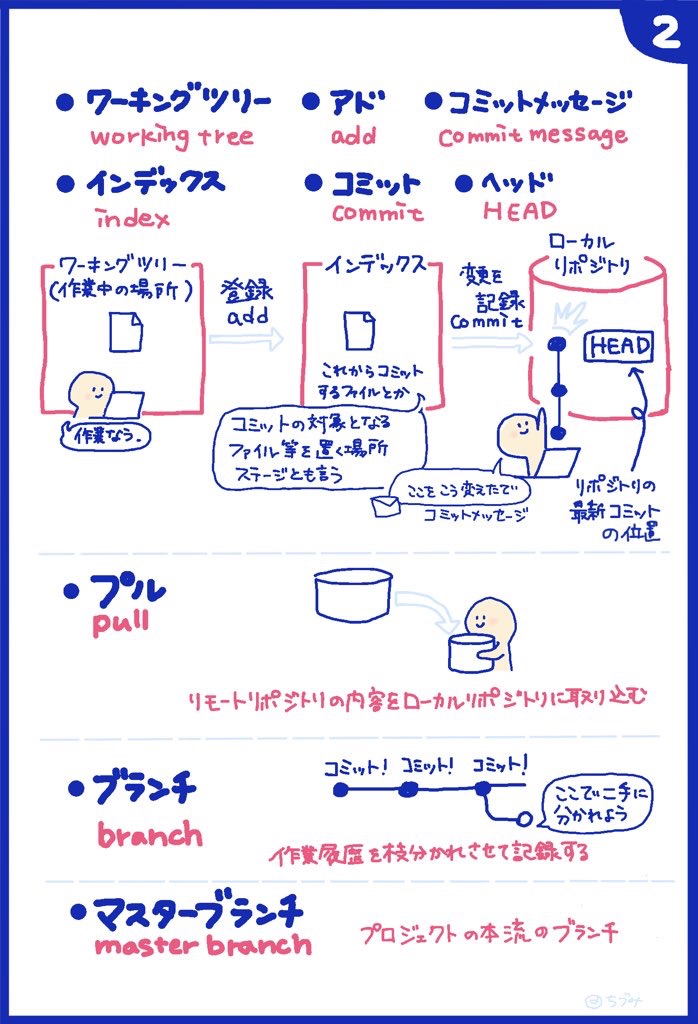 2
● ワーキングツリー
working tree
● アド
add
● コミットメッセージ
commit message
● インデックス
index
● コミット
commit
● ヘッド
HEAD
ワーキングツリー
(作業中の場所)
作業なう。
登録
add
インデックス
これからコミット
するファイルとか
コミットの対象となる
ファイル等を置く場所
ステージとも言う
変更を
記録
commit
ここをこう変えたで
コミットメッセージ
ローカル
リポジトリ
HEAD
リポジトリの
最新コミット
の位置
● プル
pull
リモートリポジトリの内容をローカルリポジトリに取り込む
● ブランチ
branch
コミット! コミット! コミット!
ここで二手に
分かれよう
作業履歴を枝分かれさせて記録する
● マスターブランチ
master branch
プロジェクトの本流のブランチ
@ちづみ